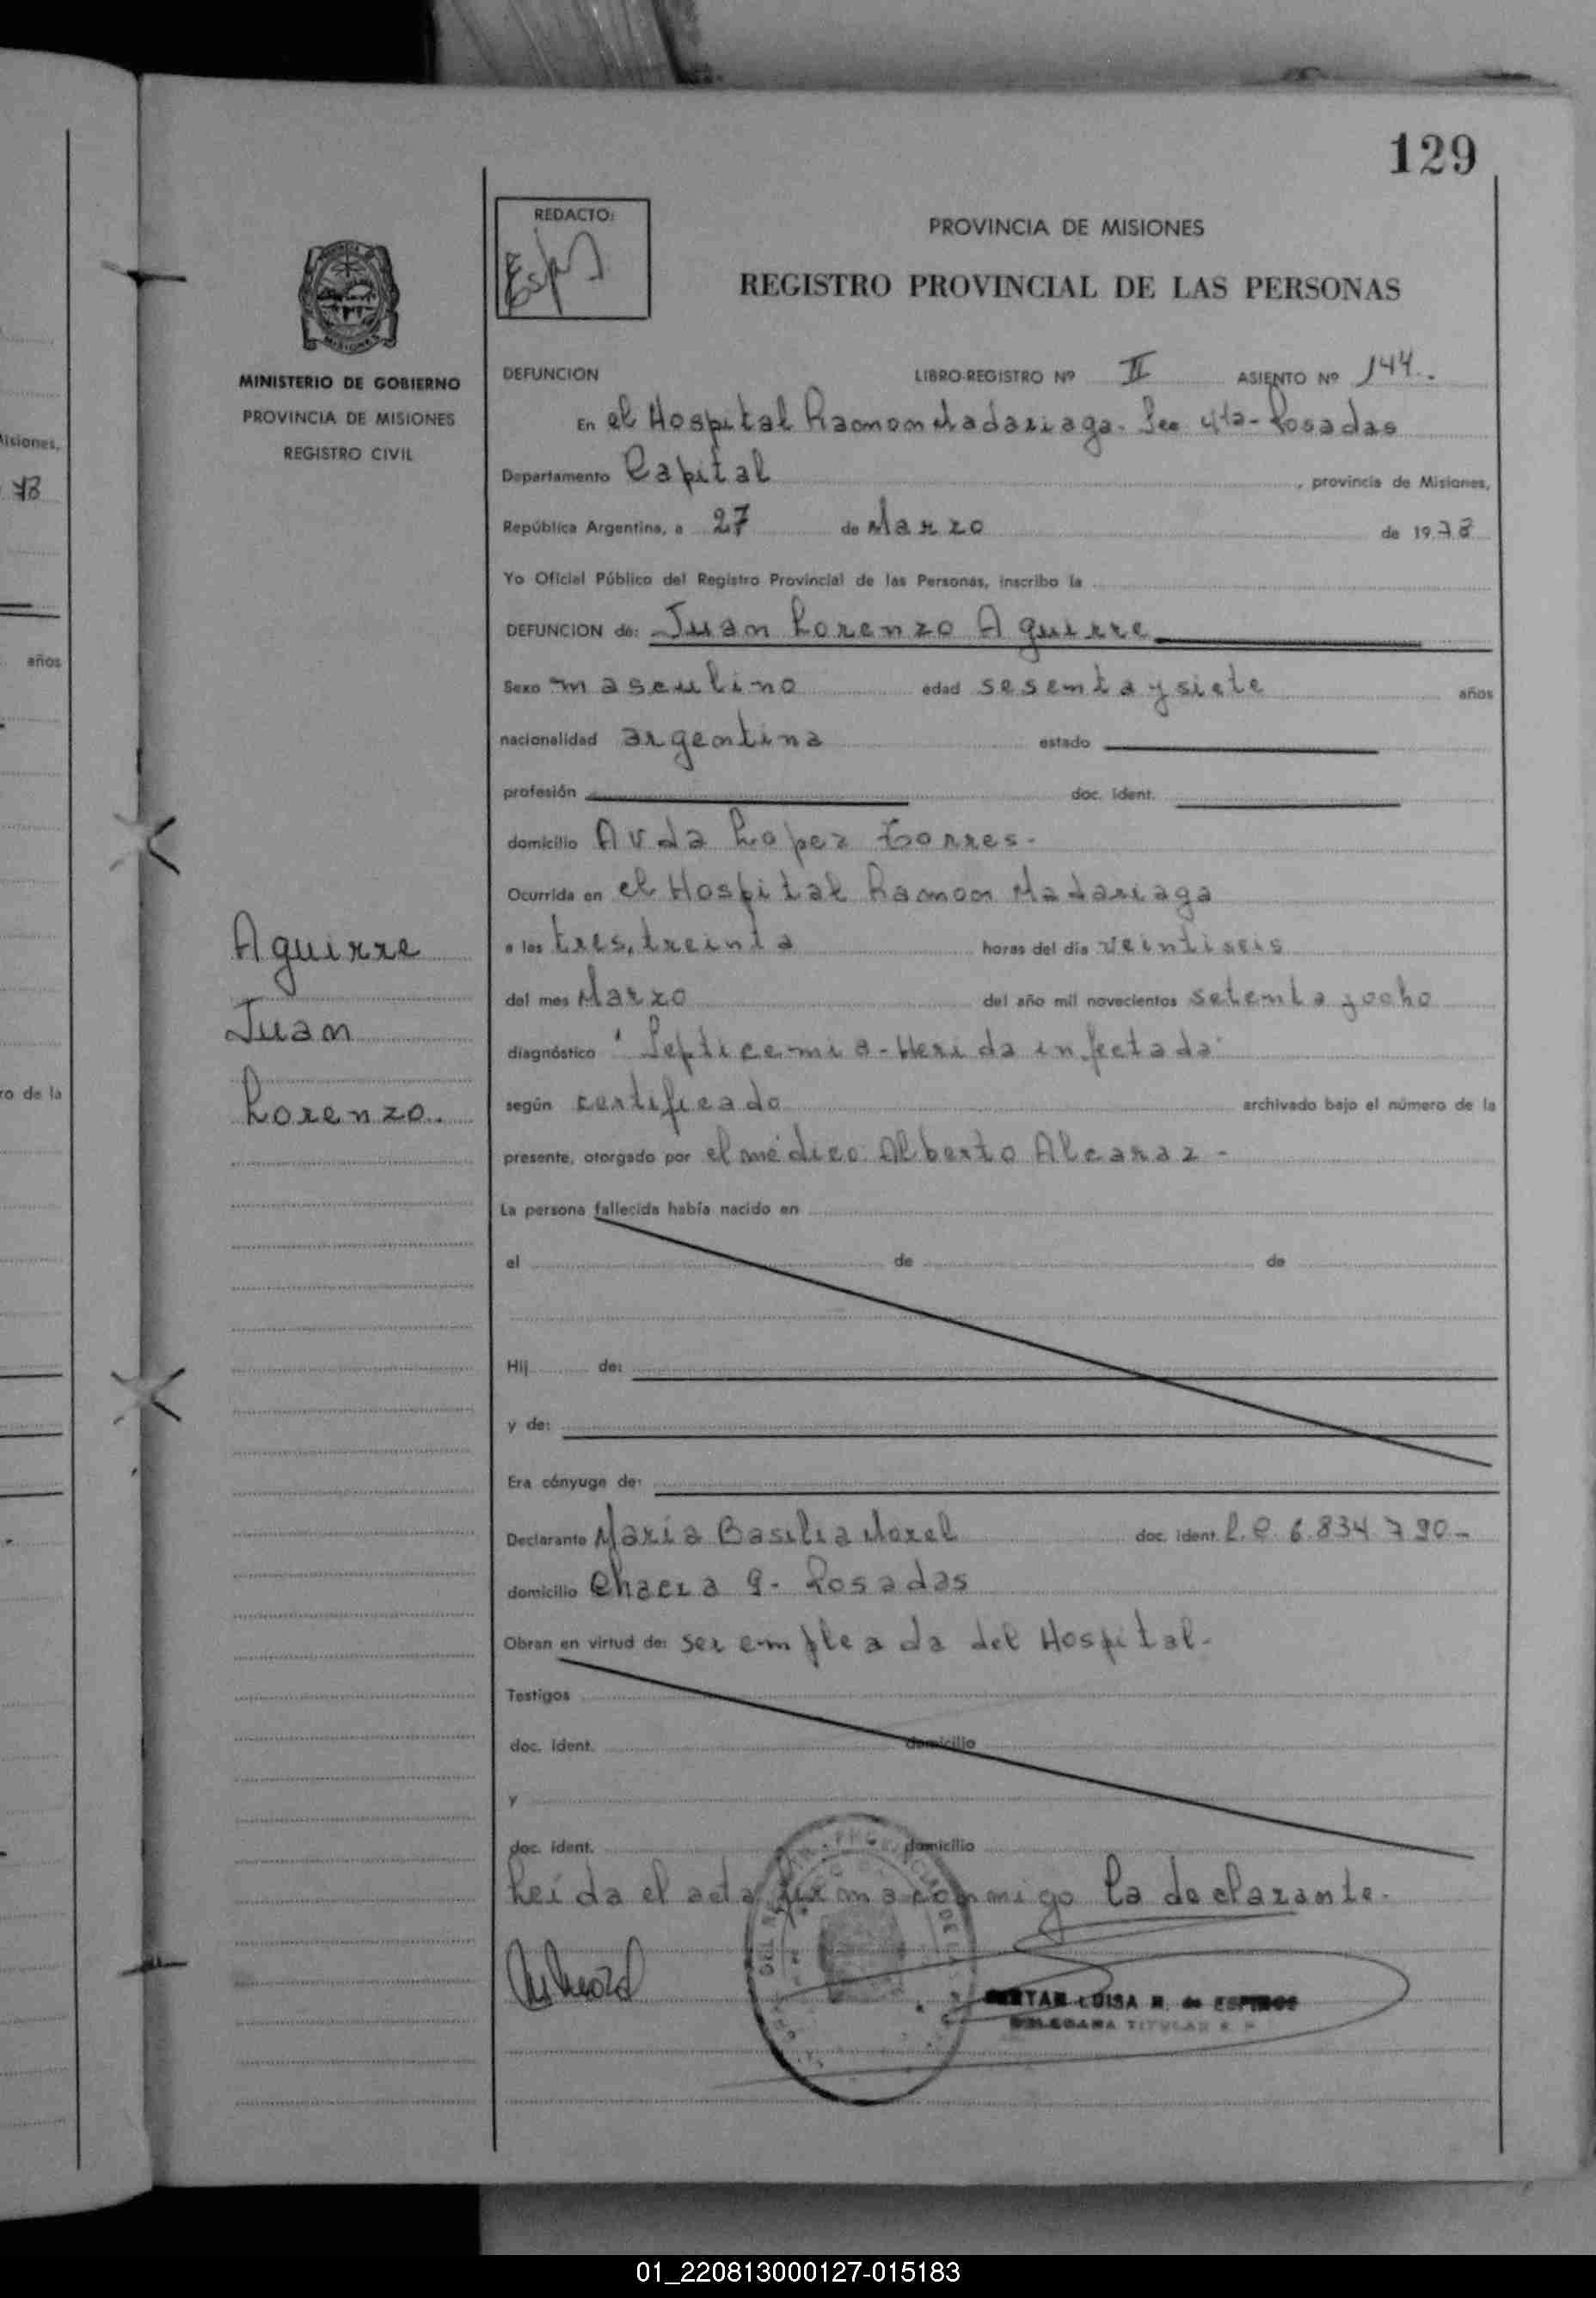 129
REDACTO:
PROVINCIA DE MISIONES
REGISTRO PROVINCIAL DE LAS PERSONAS
MINISTERIO DE GOBIERNO
PROVINCIA DE MISIONES
REGISTRO CIVIL
DEFUNCION LIBRO-REGISTRO Nº II ASIENTO Nº 144.
En el Hospital Ramon Madariaga - Sec 4ta - Posadas
Departamento Capital, provincia de Misiones,
República Argentina, a 27 de Marzo de 1978
Yo Oficial Público del Registro Provincial de las Personas, inscribo la
DEFUNCION de: Juan Lorenzo Aguirre
Sexo masculino edad sesenta y siete años
nacionalidad argentina estado
profesión doc. ident.
domicilio Avda Lopez Torres -
Ocurrida en el Hospital Ramon Madariaga
a las tres, treinta horas del día veintiseis
del mes Marzo del año mil novecientos setenta y ocho
diagnóstico "Septicemia - Herida infectada"
según certificado archivado bajo el número de la
presente, otorgado por el médico Alberto Alcaraz -
La persona fallecida había nacido en
el de de
Hij de:
y de:
Era cónyuge de:
Declarante María Basilia Morel doc. ident. L.C. 6.834.790 -
domicilio Chacra 9 - Posadas
Obran en virtud de: ser empleada del Hospital -
Testigos
doc. ident. domicilio
y
doc. ident. domicilio
Leída el acta firma conmigo la declarante.
LUISA R. de ESPINOS
TITULAR
Aguirre
Juan
Lorenzo.
Misiones,
78
años
ro de la
01_220813000127-015183